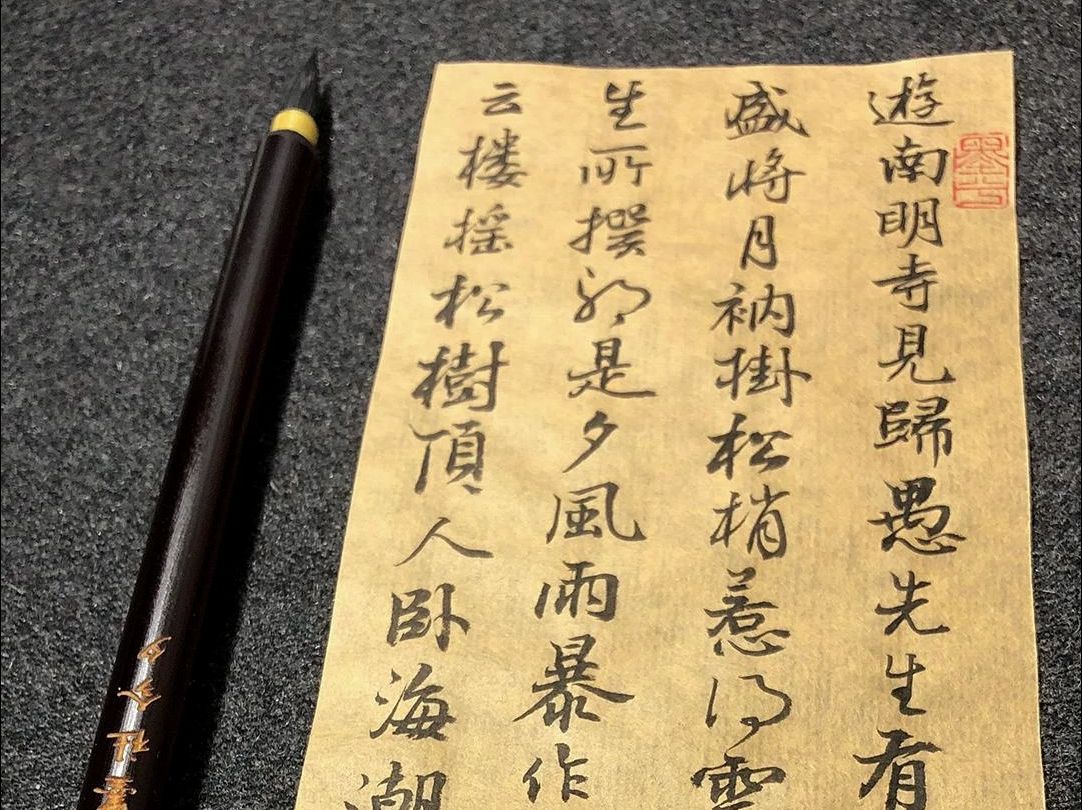 遊南明寺見歸愚先生有
盛將月衲掛松梢惹得雲
生所撰那是夕風雨暴作
云楼摇松樹頂人卧海潮